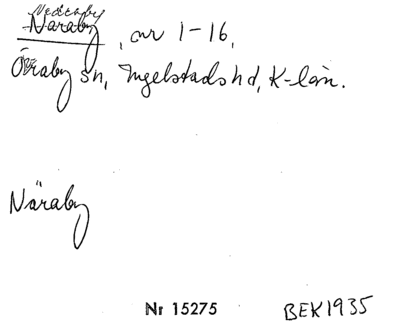 Nederaby
Näraby, nr 1-16,
Öraby sn, Ingelstads hd, K-län.
Näraby
Nr 15275 BEK 1935